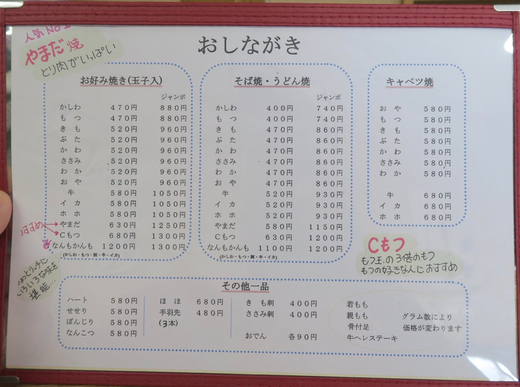 人気No.1
やまだ焼
とり肉がいっぱい
おしながき
お好み焼き(玉子入)
ジャンボ
かしわ 470円 880円
もつ 470円 880円
きも 520円 960円
ぶた 520円 960円
かわ 520円 960円
ささみ 520円 960円
わか 520円 960円
おや 520円 960円
牛 580円 1050円
イカ 580円 1050円
ホホ 580円 1050円
やまだ 630円 1250円
Cもつ 680円 1300円
なんもかんも 1200円 1300円
(かしわ・もつ・豚・牛・イカ)
おすすめ
そば焼・うどん焼
ジャンボ
かしわ 400円 740円
もつ 400円 740円
きも 460円 860円
ぶた 460円 860円
かわ 460円 860円
ささみ 460円 860円
わか 460円 860円
おや 460円 860円
牛 520円 930円
イカ 520円 930円
ホホ 520円 930円
やまだ 580円 1150円
Cもつ 630円 1200円
なんもかんも 1100円 1200円
(かしわ・もつ・豚・牛・イカ)
キャベツ焼
おや 580円
もつ 580円
きも 580円
ぶた 580円
かわ 580円
ささみ 580円
わか 580円
牛 680円
イカ 680円
ホホ 680円
Cもつ
もつ玉の3倍のもつ
もつの好きな人におすすめ
いろいろな味を
堪能
その他一品
ハート 580円
せせり 580円
ぼんじり 580円
なんこつ 580円
ほほ 680円
手羽先 480円
(3本)
きも刺 400円
ささみ刺 400円
おでん 各90円
若もも
親もも
骨付足
牛ヘレステーキ
グラム数により
価格が変わります